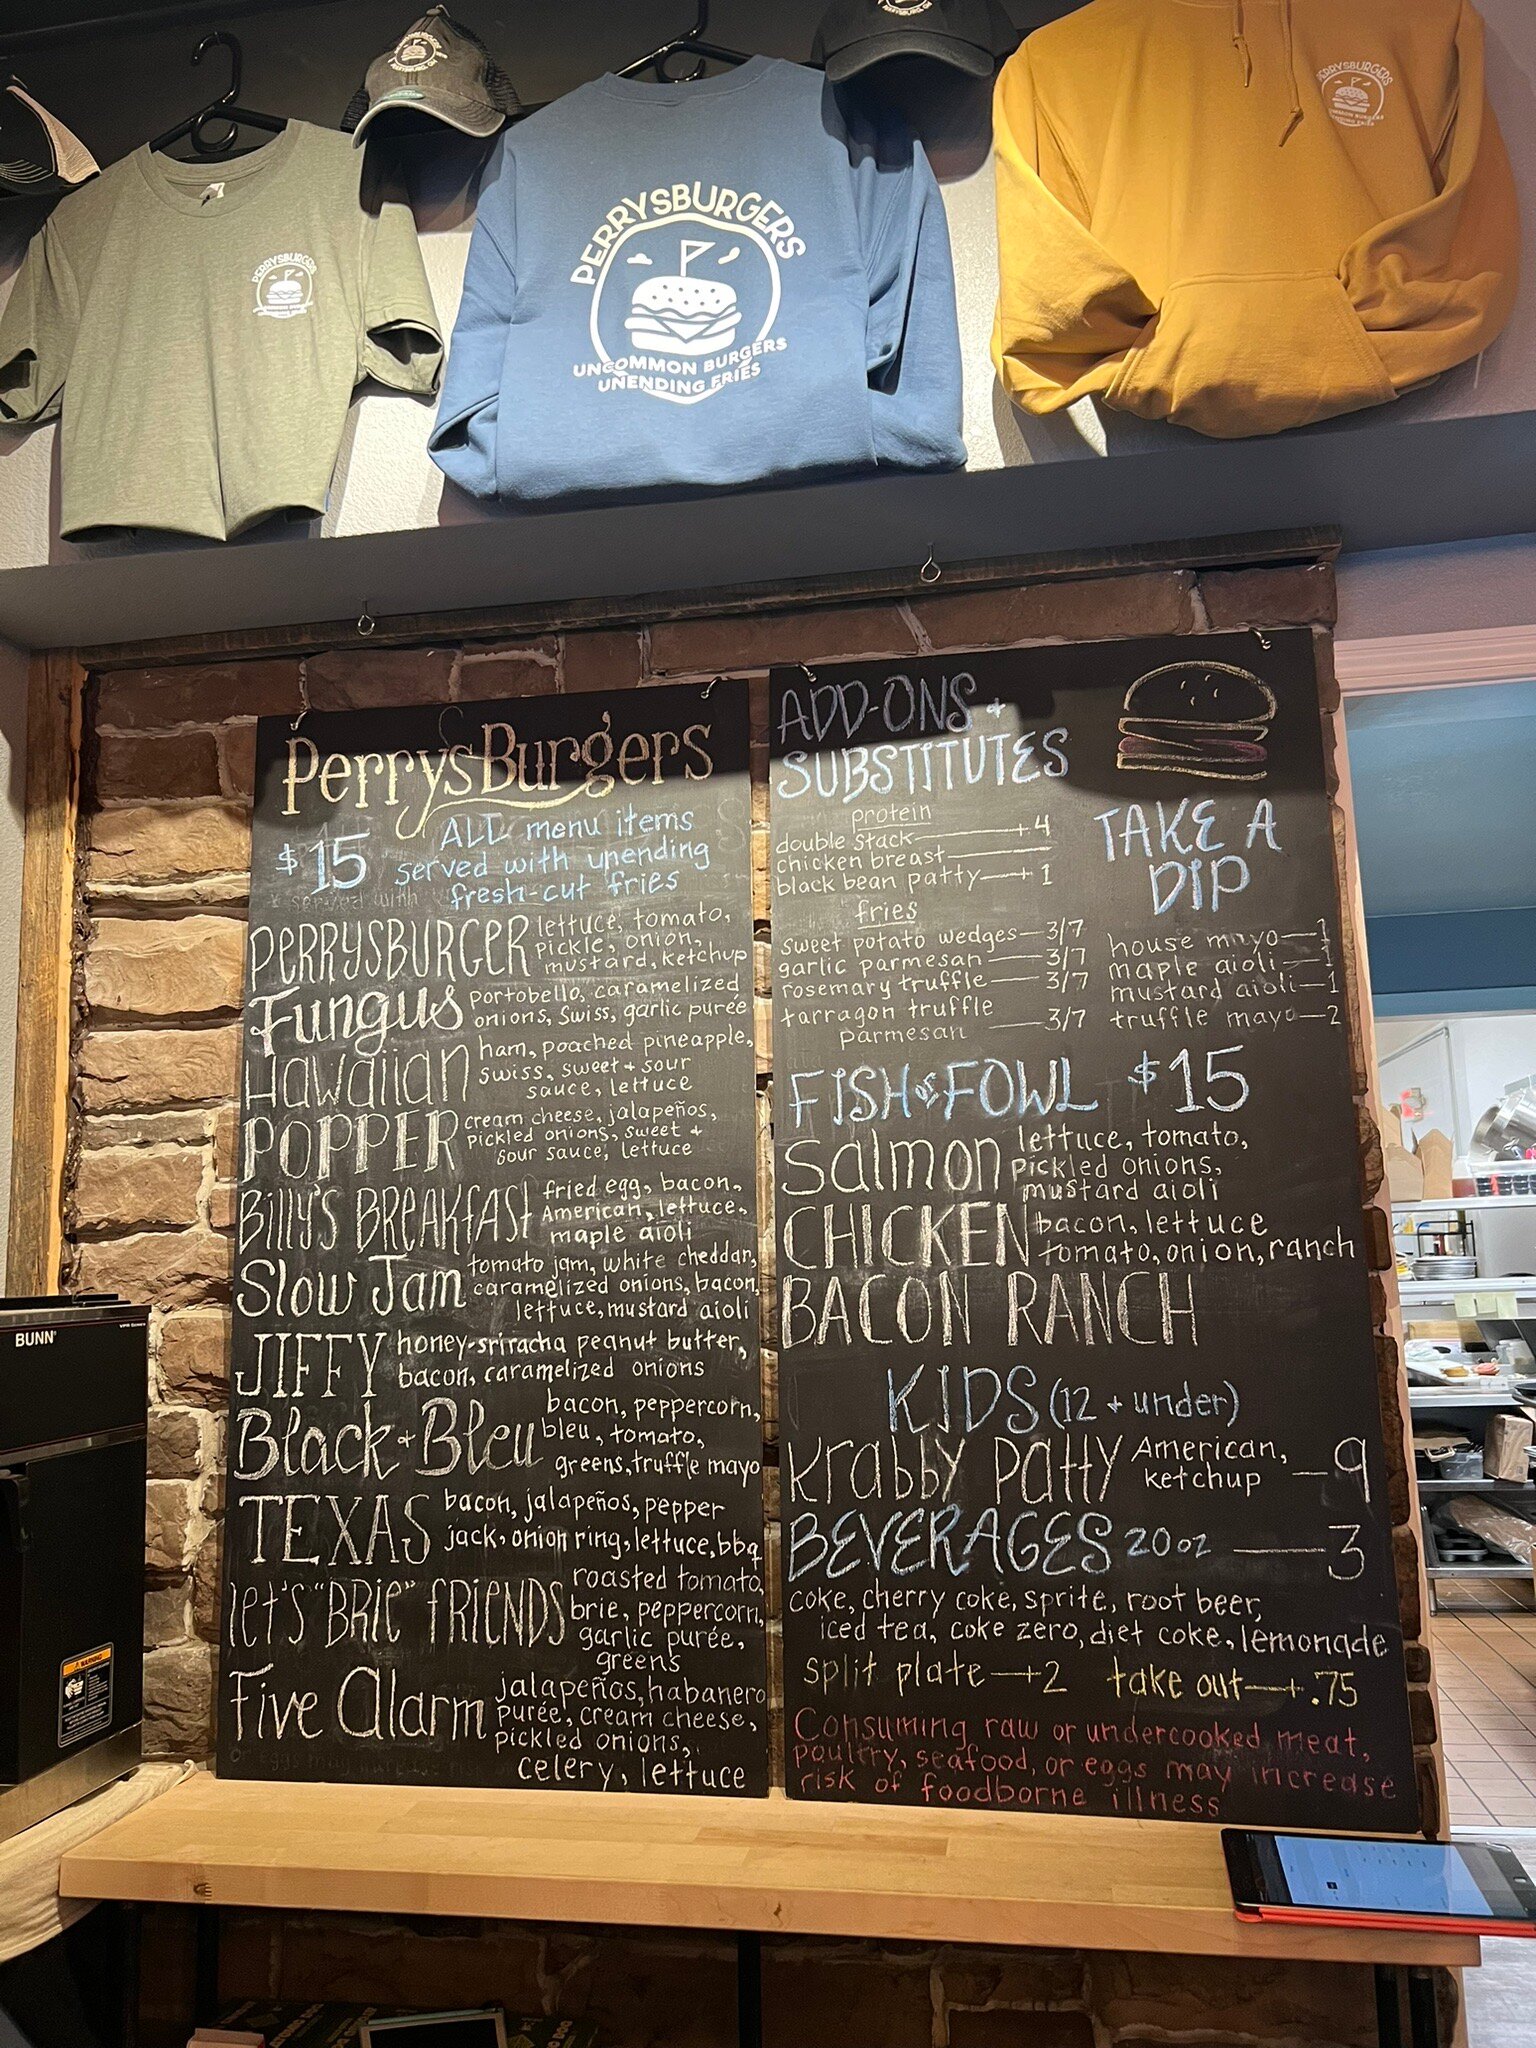 PERRYSBURGERS
PERRYSBURGERS
UNCOMMON BURGERS
UNENDING FRIES
PERRYSBURGERS
UNCOMMON BURGERS
UNENDING FRIES
PerrysBurgers
$15
ALL menu items
served with unending
fresh-cut fries
served with
PERRYSBURGER lettuce, tomato,
pickle, onion,
mustard, ketchup
Fungus portobello, caramelized
onions, Swiss, garlic purée
Hawaiian ham, poached pineapple,
swiss, sweet + sour
sauce, lettuce
POPPER cream cheese, jalapeños,
pickled onions, sweet +
sour sauce, lettuce
Billy's BREAKFAST fried egg, bacon,
American, lettuce,
maple aioli
Slow Jam tomato jam, white cheddar,
caramelized onions, bacon,
lettuce, mustard aioli
JIFFY honey-sriracha peanut butter,
bacon, caramelized onions
Black + Bleu bacon, peppercorn,
bleu, tomato,
greens, truffle mayo
TEXAS bacon, jalapeños, pepper
jack, onion ring, lettuce, bbq
let's "BRIE" fRIENDS roasted tomato,
brie, peppercorn,
garlic purée,
greens
Five Alarm jalapeños, habanero
purée, cream cheese,
pickled onions,
celery, lettuce
ADD-ONS +
SUBSTITUTES
protein
double stack + 4
chicken breast
black bean patty + 1
fries
sweet potato wedges 3/7
garlic parmesan 3/7
rosemary truffle 3/7
tarragon truffle
parmesan 3/7
TAKE A
DIP
house mayo 1
maple aioli 1
mustard aioli 1
truffle mayo 2
FISH or FOWL $15
Salmon lettuce, tomato,
pickled onions,
mustard aioli
CHICKEN bacon, lettuce
tomato, onion, ranch
BACON RANCH
KIDS (12 + under)
Krabby Patty American,
ketchup 9
BEVERAGES 20oz 3
coke, cherry coke, sprite, root beer,
iced tea, coke zero, diet coke, lemonade
split plate +2 take out +.75
Consuming raw or undercooked meat,
poultry, seafood, or eggs may increase
risk of foodborne illness
BUNN
WARNING